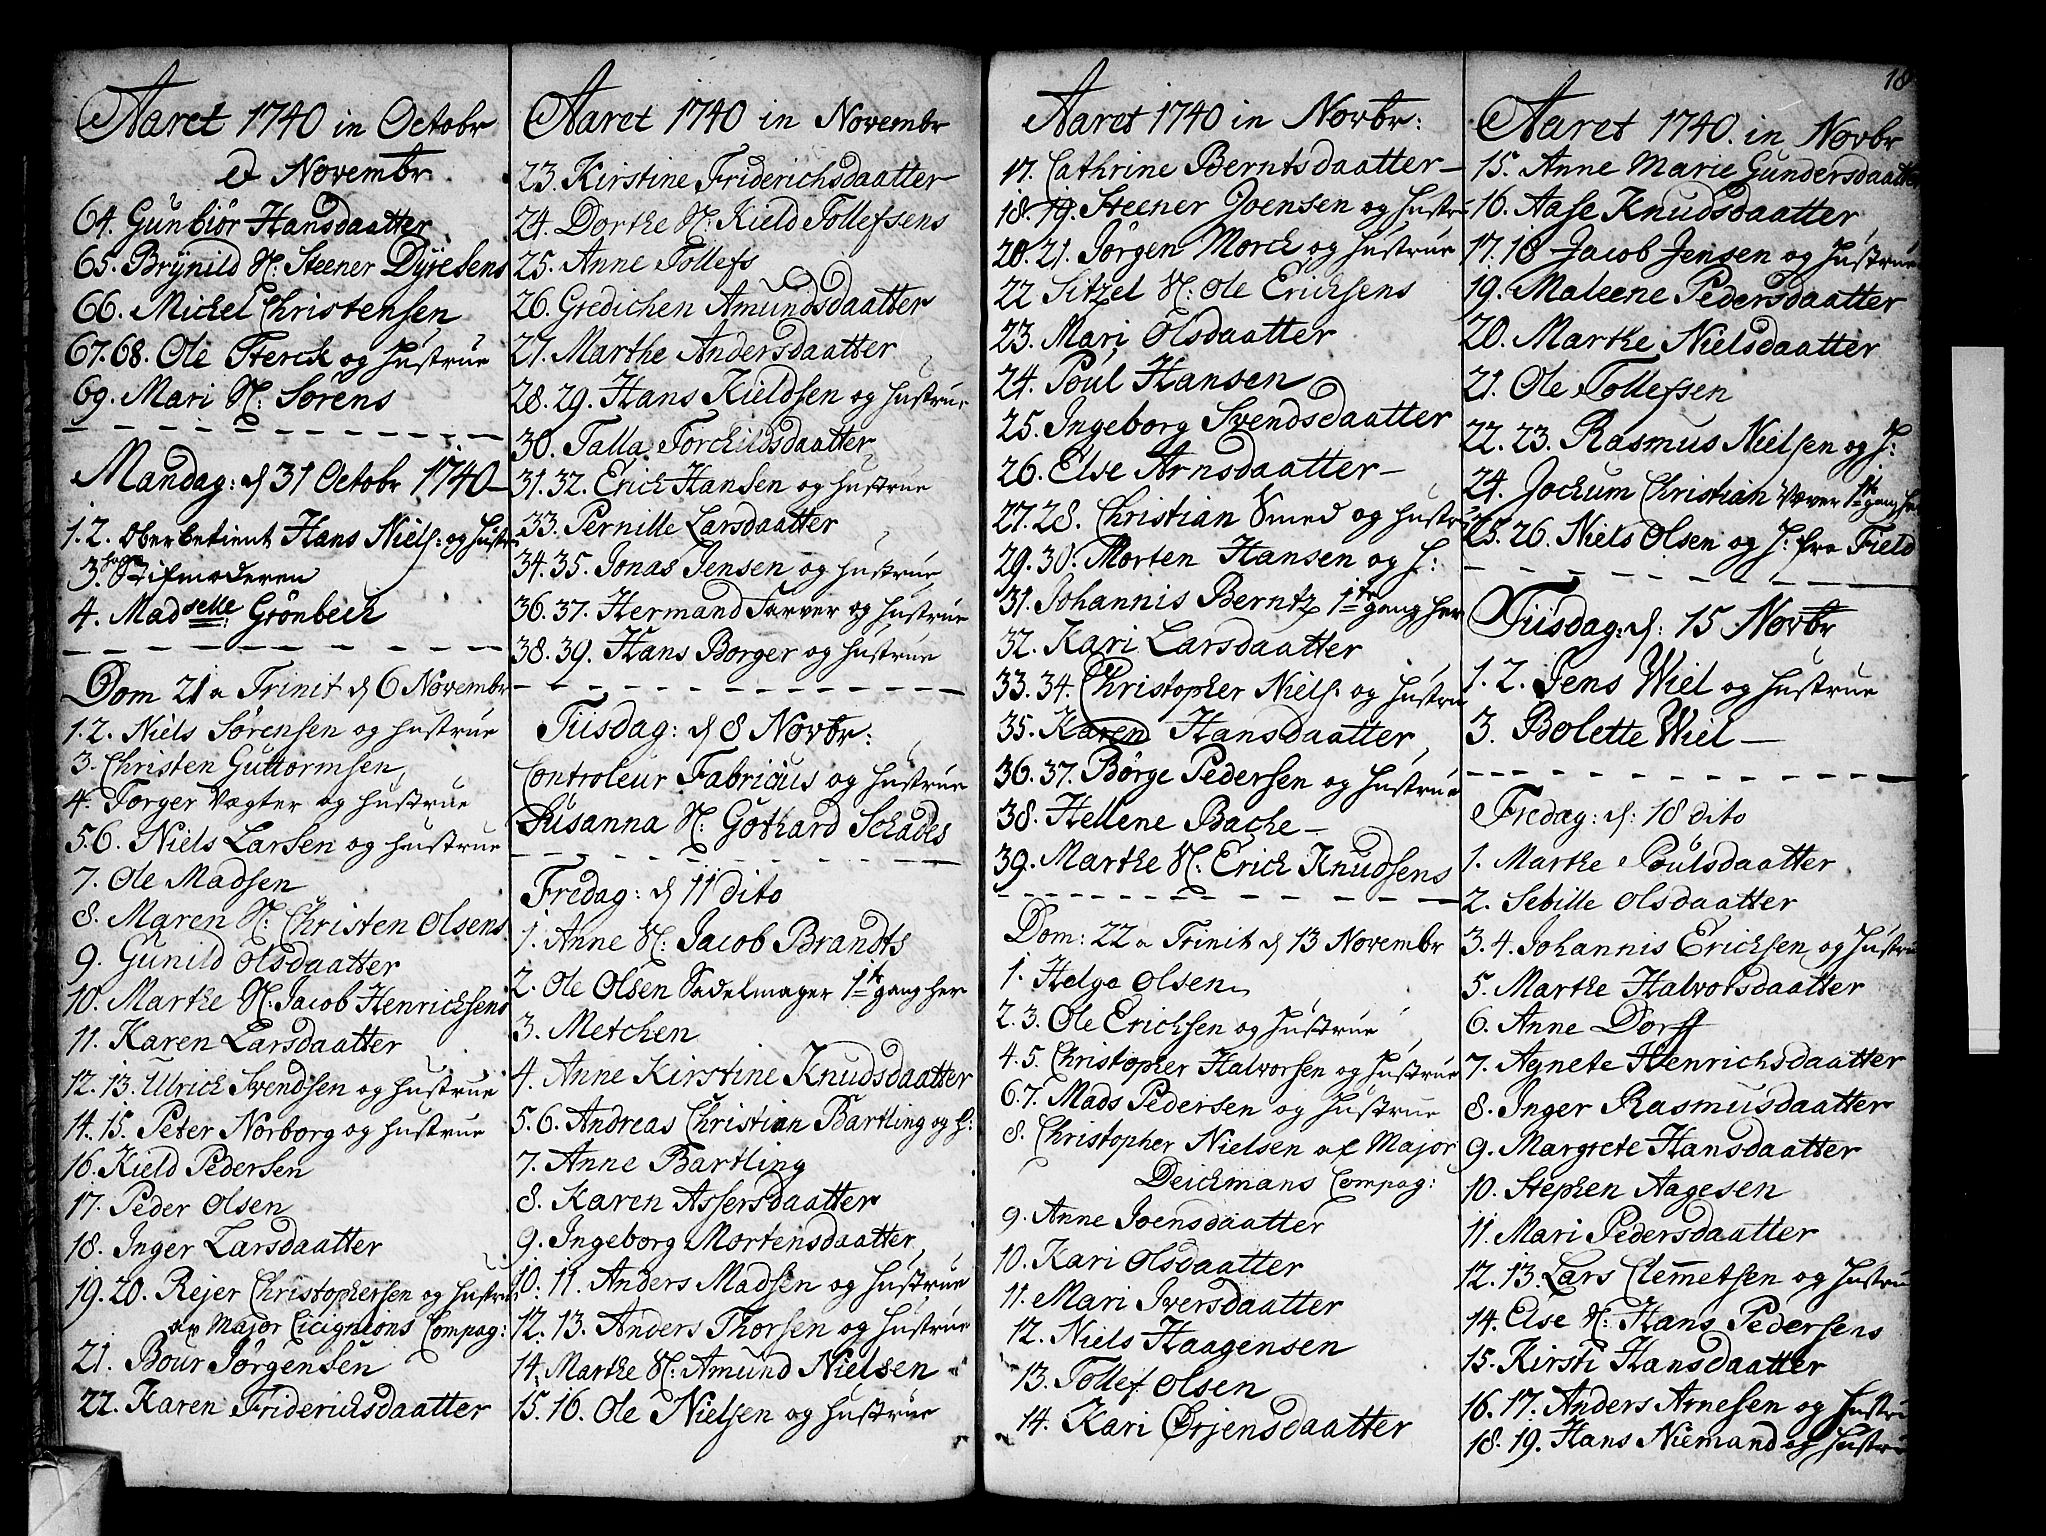 Aaret 1740 in Octobr
& Novembr
64. Gunbiör Hansdaatter
65. Brÿnild N: Steener Dÿresens
66. Mickel Christensen
67. 68. Ole Sterck og Hustrue
69. Mari N: Sörens
Mandag: d 31 Octobr 1740
1. 2. Oberbetient Hans Niels: og Hustr
3. Stifmoderen
4. Madselle Grönbech
Dom 21 a Trinit d 6 Novembr
1. 2. Niels Sörensen og Hustrue
3. Christen Guttormsen
4. Torger Vægter og Hustrue
5. 6. Niels Larsen og Hustrue
7. Ole Madsen
8. Maren N: Christen Olsens
9. Gunild Olsdaatter
10. Marthe N: Jacob Henrichsens
11. Karen Larsdaatter
12. 13. Ulrich Svendsen og Hustrue
14. 15. Peter Norborg og Hustrue
16. Kield Pedersen
17. Peder Olsen
18. Inger Larsdaatter
19. 20. Rejer Christophersen og Hustrue
af Major Cicignions Compag:
21. Bour Jörgensen
22. Karen Friderichsdaatter
Aaret 1740 in Novembr
23. Kirstine Friderichsdaatter
24. Dorthe N: Kield Tollefsens
25. Anne Tollefs
26. Gredichen Amundsdaatter
27. Marthe Andersdaatter
28. 29. Hans Kieldsen og Hustrue
30. Talla Torchildsdaatter
31. 32. Erich Hansen og Hustrue
33. Pernille Larsdaatter
34. 35. Jonas Jensen og Hustrue
36. 37. Hermand Farver og Hustrue
38. 39. Hans Borger og Hustrue
Tiisdag: d 8 Novbr:
Controleur Fabricius og Hustrue
Susanna N: Gothard Schades
Fredag: d 11 dito
1. Anne N: Jacob Brandts
2. Ole Olsen Sadelmager 1te gang her
3. Metchen
4. Anne Kirstine Knudsdaatter
5. 6. Andreas Christian Bartling og H:
7. Anne Bartling
8. Karen Assersdaatter
9. Ingeborg Mortensdaatter
10. 11. Anders Madsen og Hustrue
12. 13. Anders Thorsen og Hustrue
14. Marthe N: Amund Nielsen
15. 16. Ole Nielsen og Hustrue
Aaret 1740 in Novbr:
17. Cathrine Berntsdaatter
18. 19. Steener Joensen og Hustr
20. 21. Jörgen Morck og Hustrue
22 Sitzel N: Ole Ericksens
23. Mari Olsdaatter
24. Poul Hansen
25. Ingeborg Svendsdaatter
26. Else Arnsdaatter
27. 28. Christian Smed og Hustr
29. 30. Morten Hansen og H:
31. Johannis Berntz 1te gang her
32. Kari Larsdaatter
33. 34. Christopher Niels: og Hustru
35. Karen Hansdaatter
36. 37. Börge Pedersen og Hustrue
38. Hellene Bache
39. Marthe N: Erich Knudsens
Dom: 22 a Trinit d 13 Novembr
1. Helge Olsen
2. 3. Ole Erichsen og Hustrue
4. 5. Christopher Halvorsen og Hustrue
6. 7. Mads Pedersen og Hustrue
8. Christopher Nielsen af Major
Deichmans Compag:
9. Anne Joensdaatter
10. Kari Olsdaatter
11. Mari Iversdaatter
12. Niels Haagensen
13. Tollef Olsen
14. Kari Örjensdaatter
18
Aaret 1740. in Novbr
15. Anne Marie Gundersdaatter
16. Aase Knudsdaatter
17. 18 Jacob Jensen og Hustrue
19. Maleene Pedersdaatter
20. Marthe Nielsdaatter
21. Ole Tollefsen
22. 23. Rasmus Nielsen og H:
24. Jochum Christian Væver 1te gang her
25. 26. Niels Olsen og H: fra Field
Tiisdag: d: 15 Novbr
1. 2. Jens Wiel og Hustrue
3. Bolette Wiel
Fredag: d: 18 dito
1. Marthe Poulsdaatter
2. Sebille Olsdaatter
3. 4. Johannis Ericksen og Hustru
5. Marthe Halvorsdaatter
6. Anne Dorff
7. Agnete Henrichsdaatter
8. Inger Rasmusdaatter
9. Margrete Hansdaatter
10. Stephen Aagesen
11. Mari Pedersdaatter
12. 13. Lars Clemmetsen og Hustru
14. Else N: Hans Pedersens
15. Kirsti Hansdaatter
16. 17. Anders Arnesen og Hustru
18. 19. Hans Niemand og Hustru